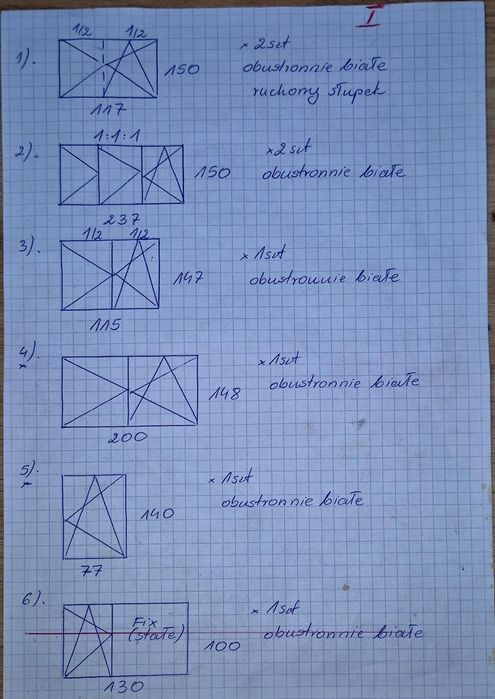 I
1).
1/2 1/2
150
117
x 2szt
obustronnie białe
ruchomy słupek
2).
1:1:1
150
237
x 2szt
obustronnie białe
3).
1/2 1/2
147
115
x 1szt
obustronnie białe
4).
x
148
200
x 1szt
obustronnie białe
5).
x
140
77
x 1szt
obustronnie białe
6).
Fix
(stałe)
100
130
x 1szt
obustronnie białe